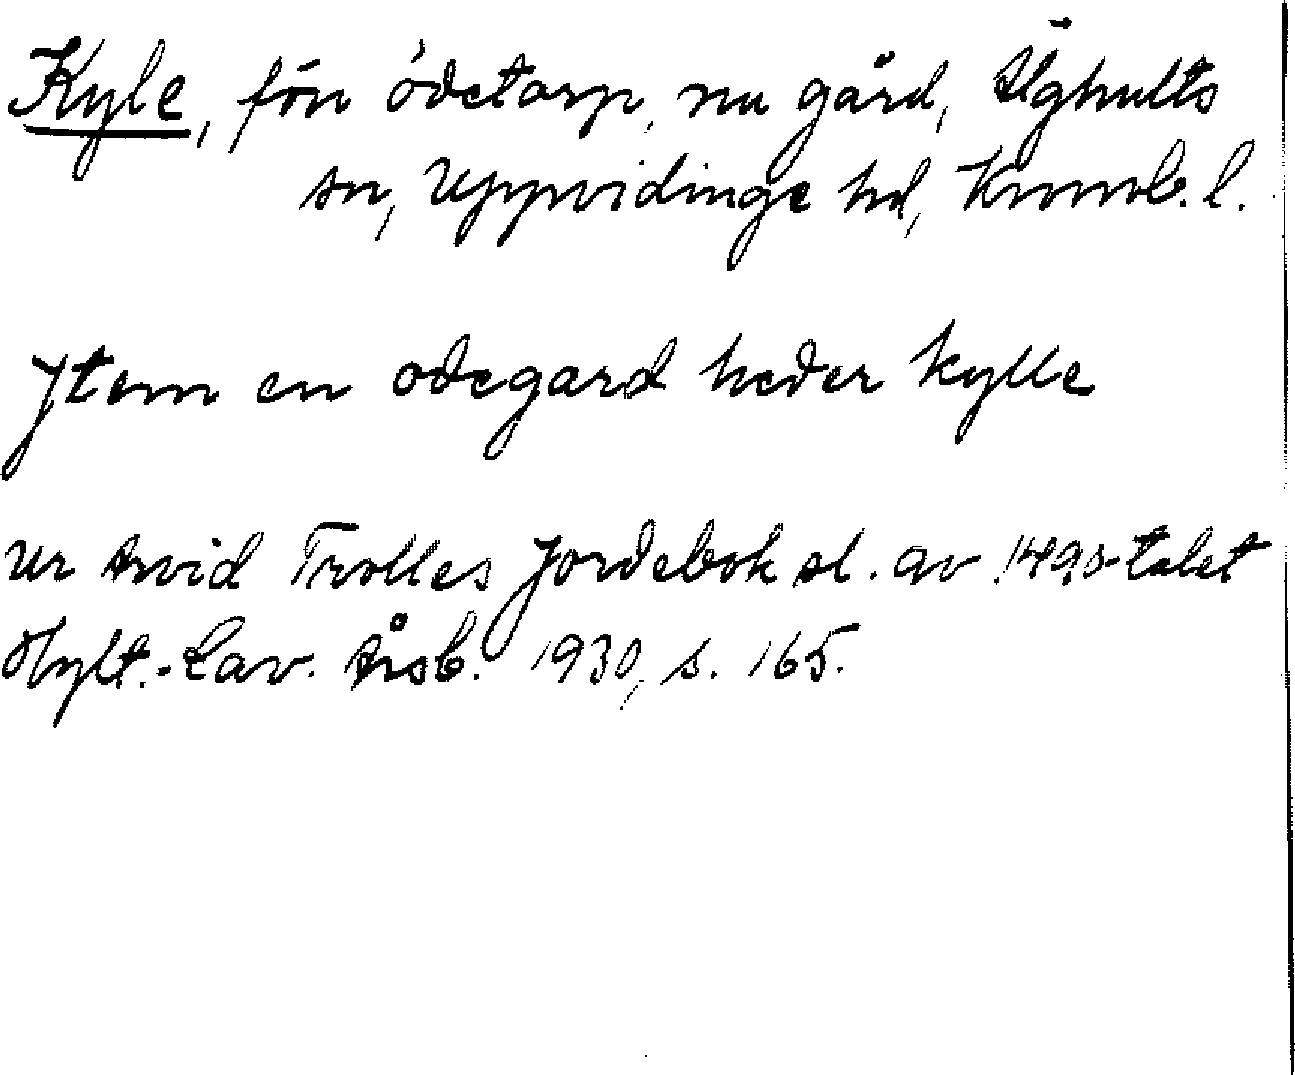 Kyle, förr ödetorp, nu gård, Älghults
sn, Uppvidinge hd, Kronob. l.
Jtem en odegard heder kylle
Ur Arvid Trolles Jordebok sl. av 1490-talet
Hylt.-Cav. Årsb. 1930, s. 165.